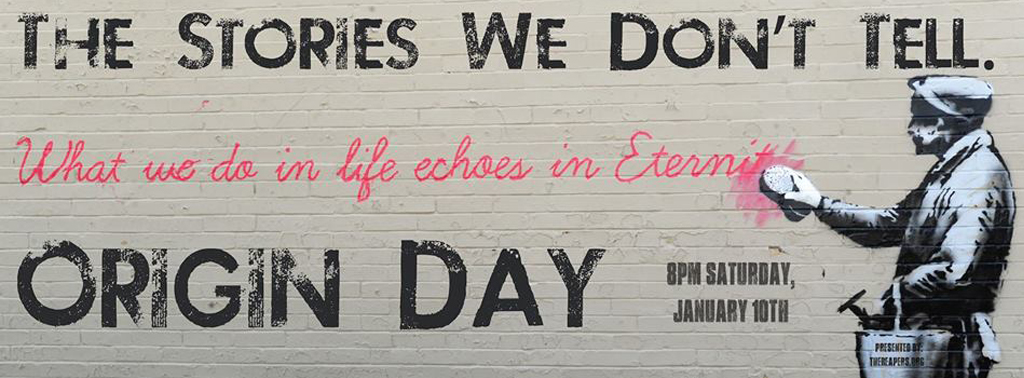 THE STORIES WE DON'T TELL.
What we do in life echoes in Eternit
ORIGIN DAY
8PM SATURDAY,
JANUARY 10TH
PRESENTED BY:
THEREAPERS.ORG